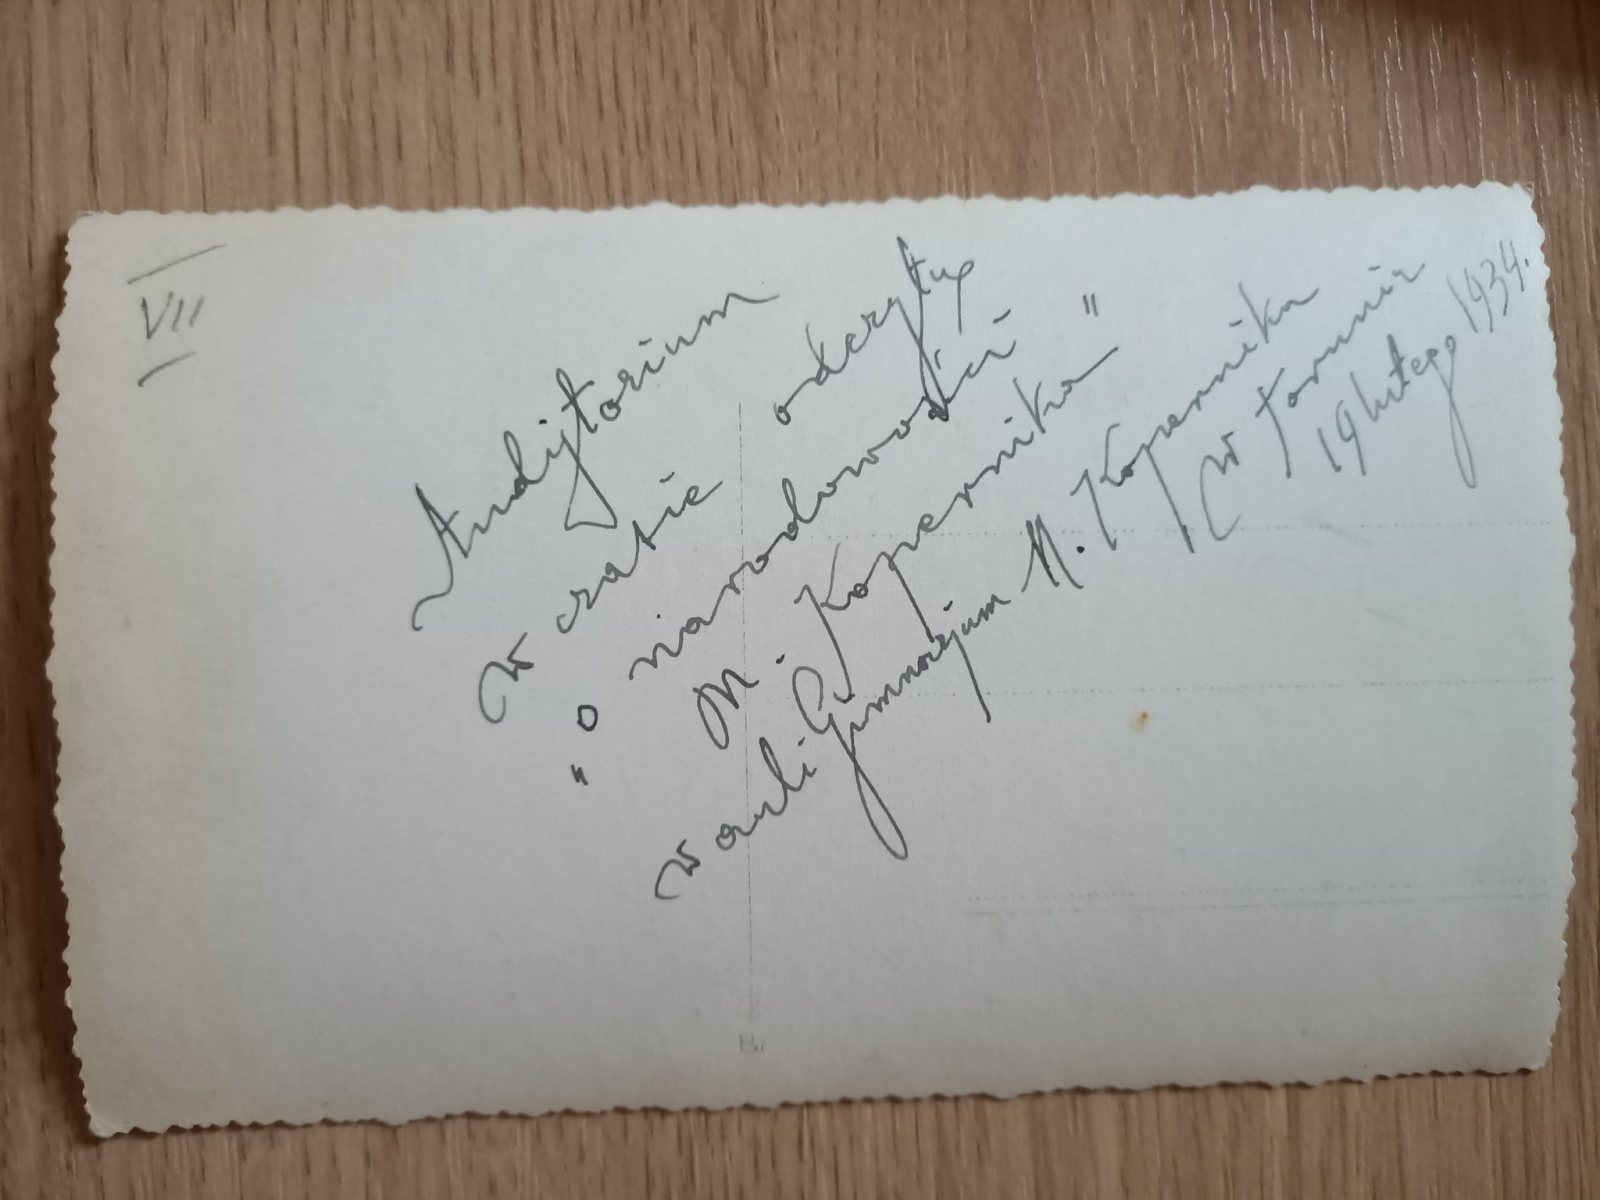 VII
Audytorium
w czasie odczytu
"o narodowości
M. Kopernika"
w auli Gimnazjum M. Kopernika
w Toruniu
19 lutego 1934.